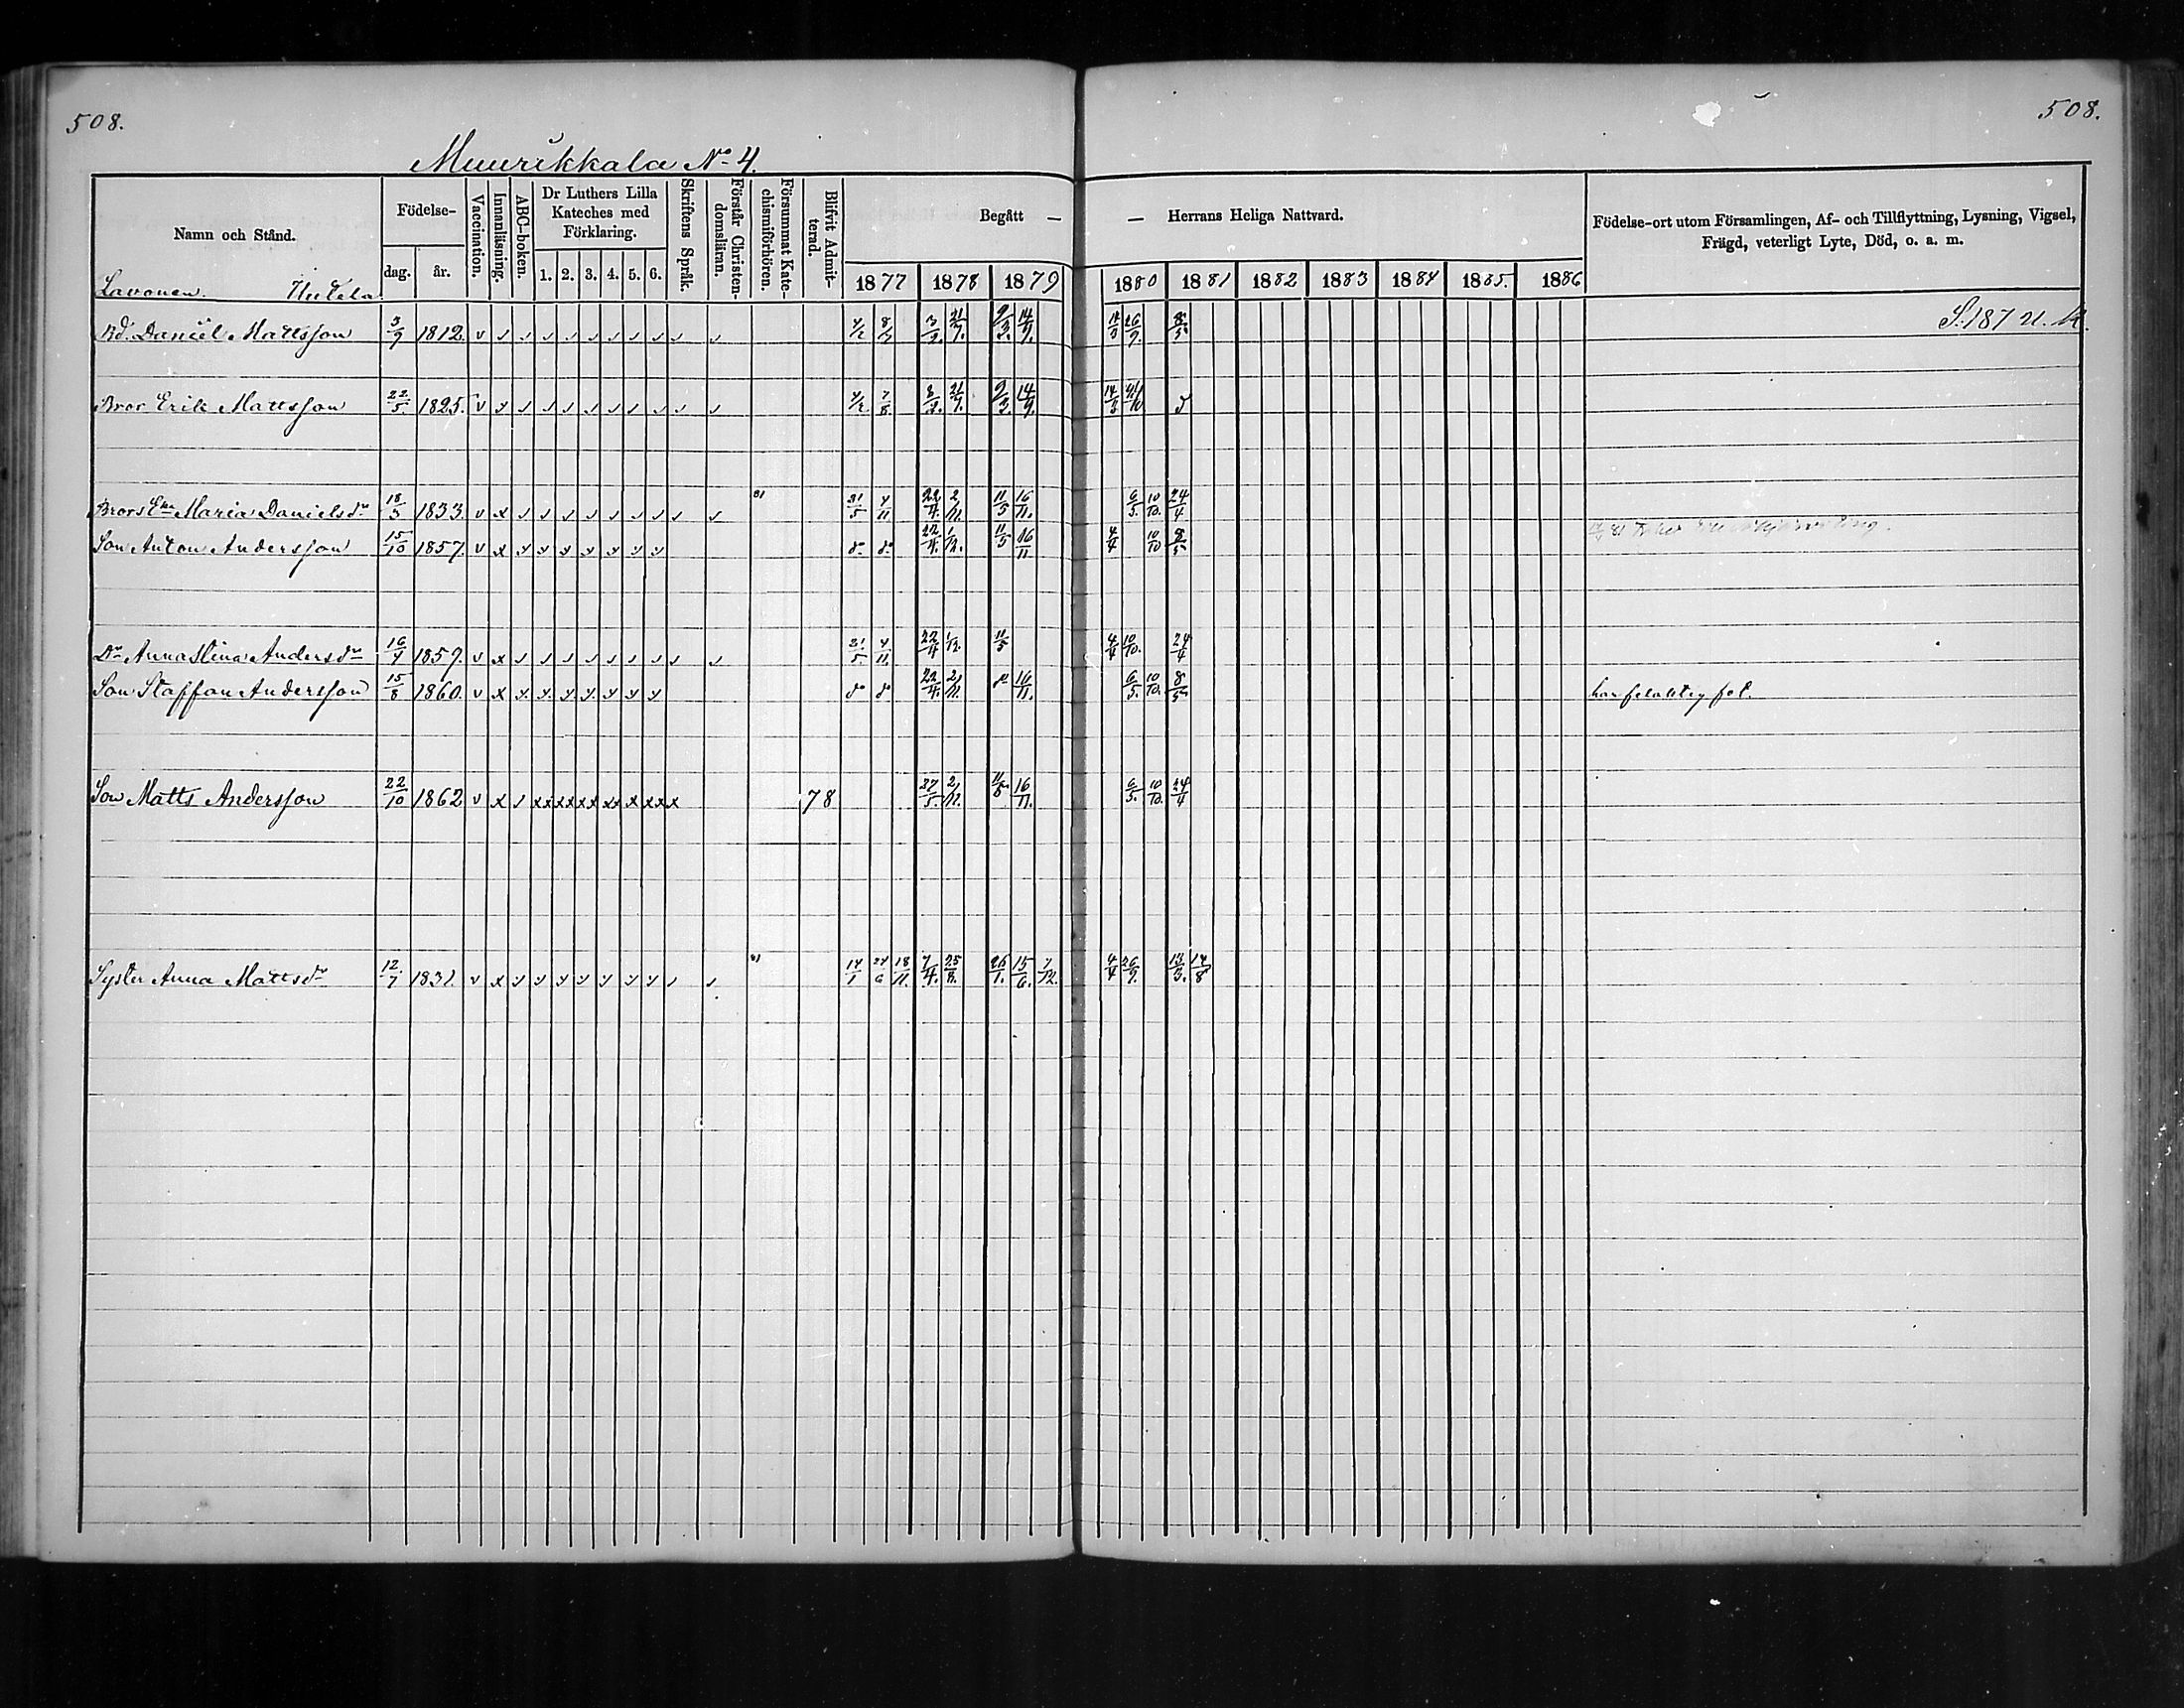 508.
508.
Muurikkala No 4.
Namn och Stånd.
Födelse-
dag.
år.
Vaccination.
Innanläsning.
ABC-boken.
Dr Luthers Lilla Kateches med Förklaring.
1. 2. 3. 4. 5. 6.
Skriftens Språk.
Förstår Christendomsläran.
Försummat Katechismiförhören.
Blifvit Admitterad.
Begått — — Herrans Heliga Nattvard.
1877 1878 1879 1880 1881 1882 1883 1884 1885. 1886
Födelse-ort utom Församlingen, Af- och Tillflyttning, Lysning, Vigsel,
Frägd, veterligt Lyte, Död, o. a. m.
Lavonen.
Bd. Daniel Mattsson 3/9 1812.
Bror Erik Mattsson 22/5 1825. 7/8
Brors Eka Maria Danielsdr 18/3 1833. 31/5 4/11 22/4 2/11. 11/5 16/11. 6/5. 10/10. 24/4
Son Anton Andersson 15/10 1857. do do 22/4. 11/5 16/11 4/4 10/10 8/5
Dr Anna Stina Andersdr 16/4 1859. 31/5 4/11. 22/4 11/5 4/4 10/10. 24/4
Son Staffan Andersson 15/8 1860. do do 22/4. 2/11. do 16/11. 6/5. 10/10. 8/5
Son Matts Andersson 22/10 1862 78 27/5. 2/11. 11/5 16/11. 6/5. 10/10. 24/4
Syster Anna Mattsdr 12/7 1831. 14/1 24/6 18/11. 7/4. 25/8. 26/1. 15/6. 7/12. 4/4 26/9. 13/3. 14/8